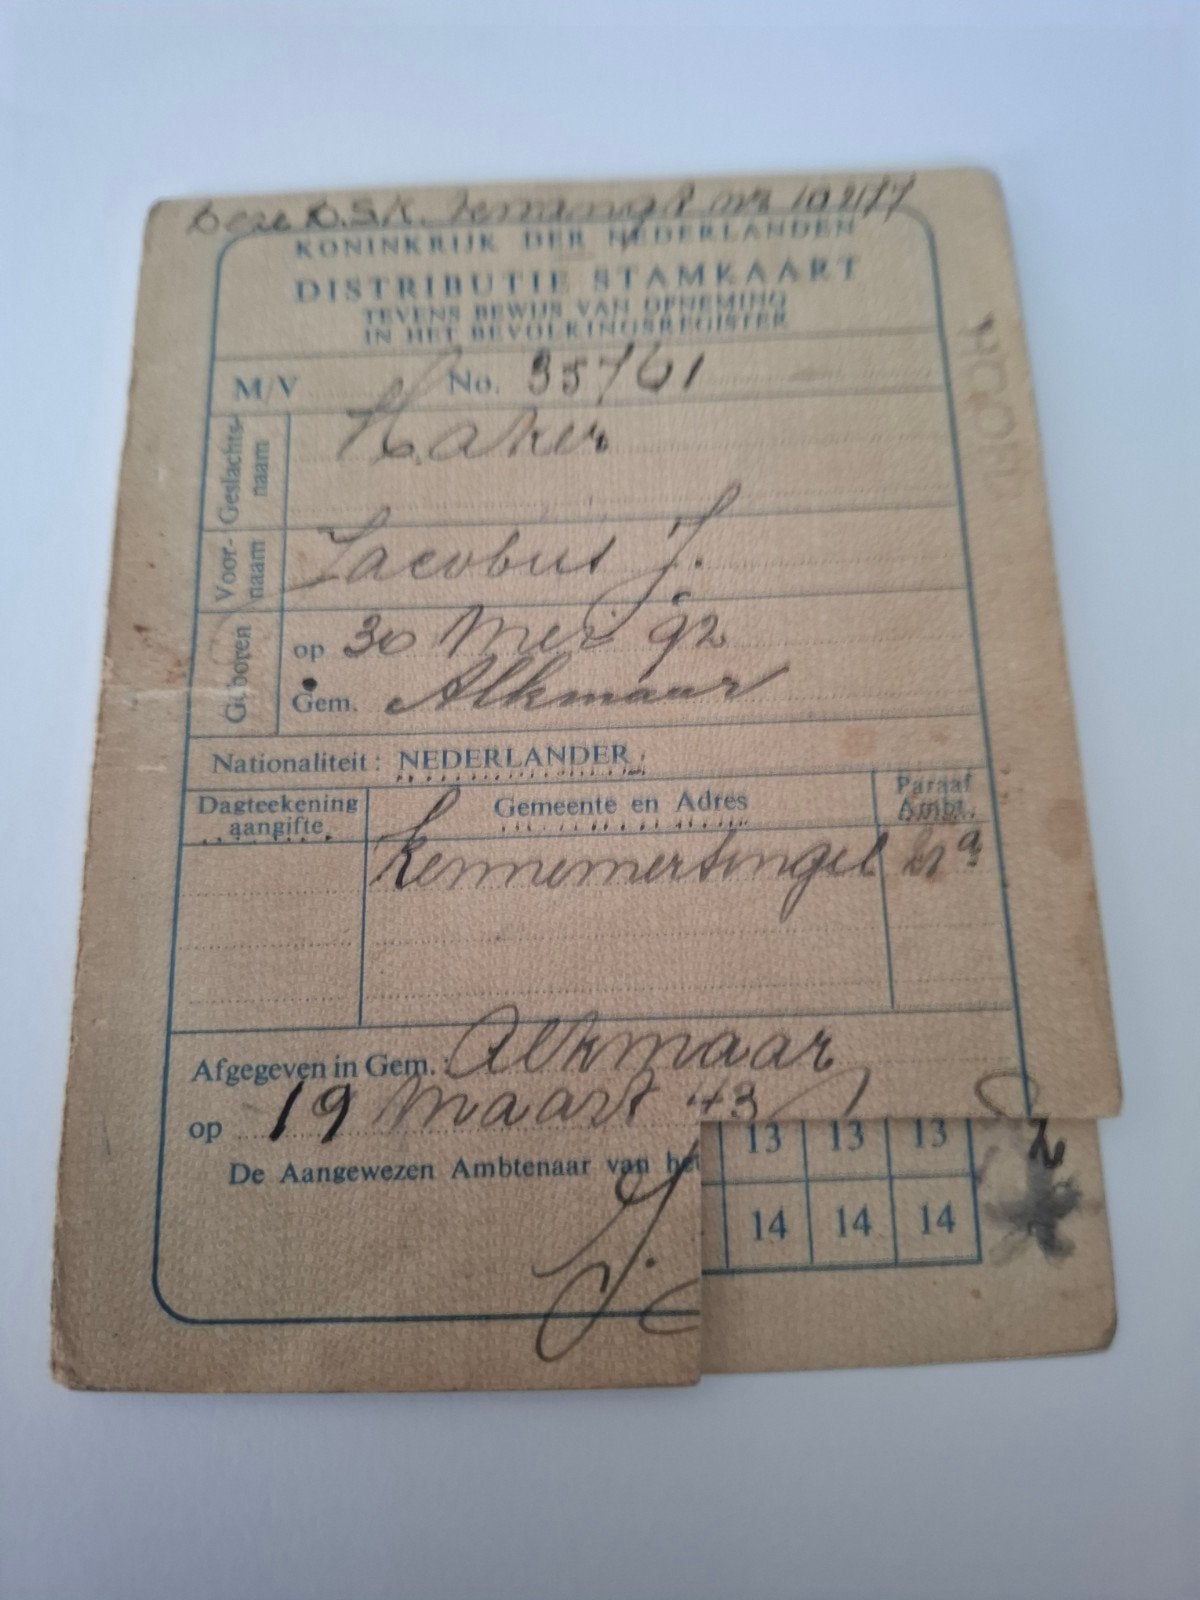 Deze D.S.K. vervangt nr 102177
KONINKRIJK DER NEDERLANDEN
DISTRIBUTIE STAMKAART
TEVENS BEWIJS VAN OPNEMING
IN HET BEVOLKINGSREGISTER
M/V No. 35761
Geslachts-naam Haker
Voor-naam Jacobus J.
Geboren op 30 Mei 92
Gem. Alkmaar
Nationaliteit: NEDERLANDER
Dagteekening aangifte Gemeente en Adres Paraaf Ambt.
Kennemersingel
Afgegeven in Gem.: Alkmaar
op 19 Maart 43
De Aangewezen Ambtenaar van het
13 13 13
14 14 14